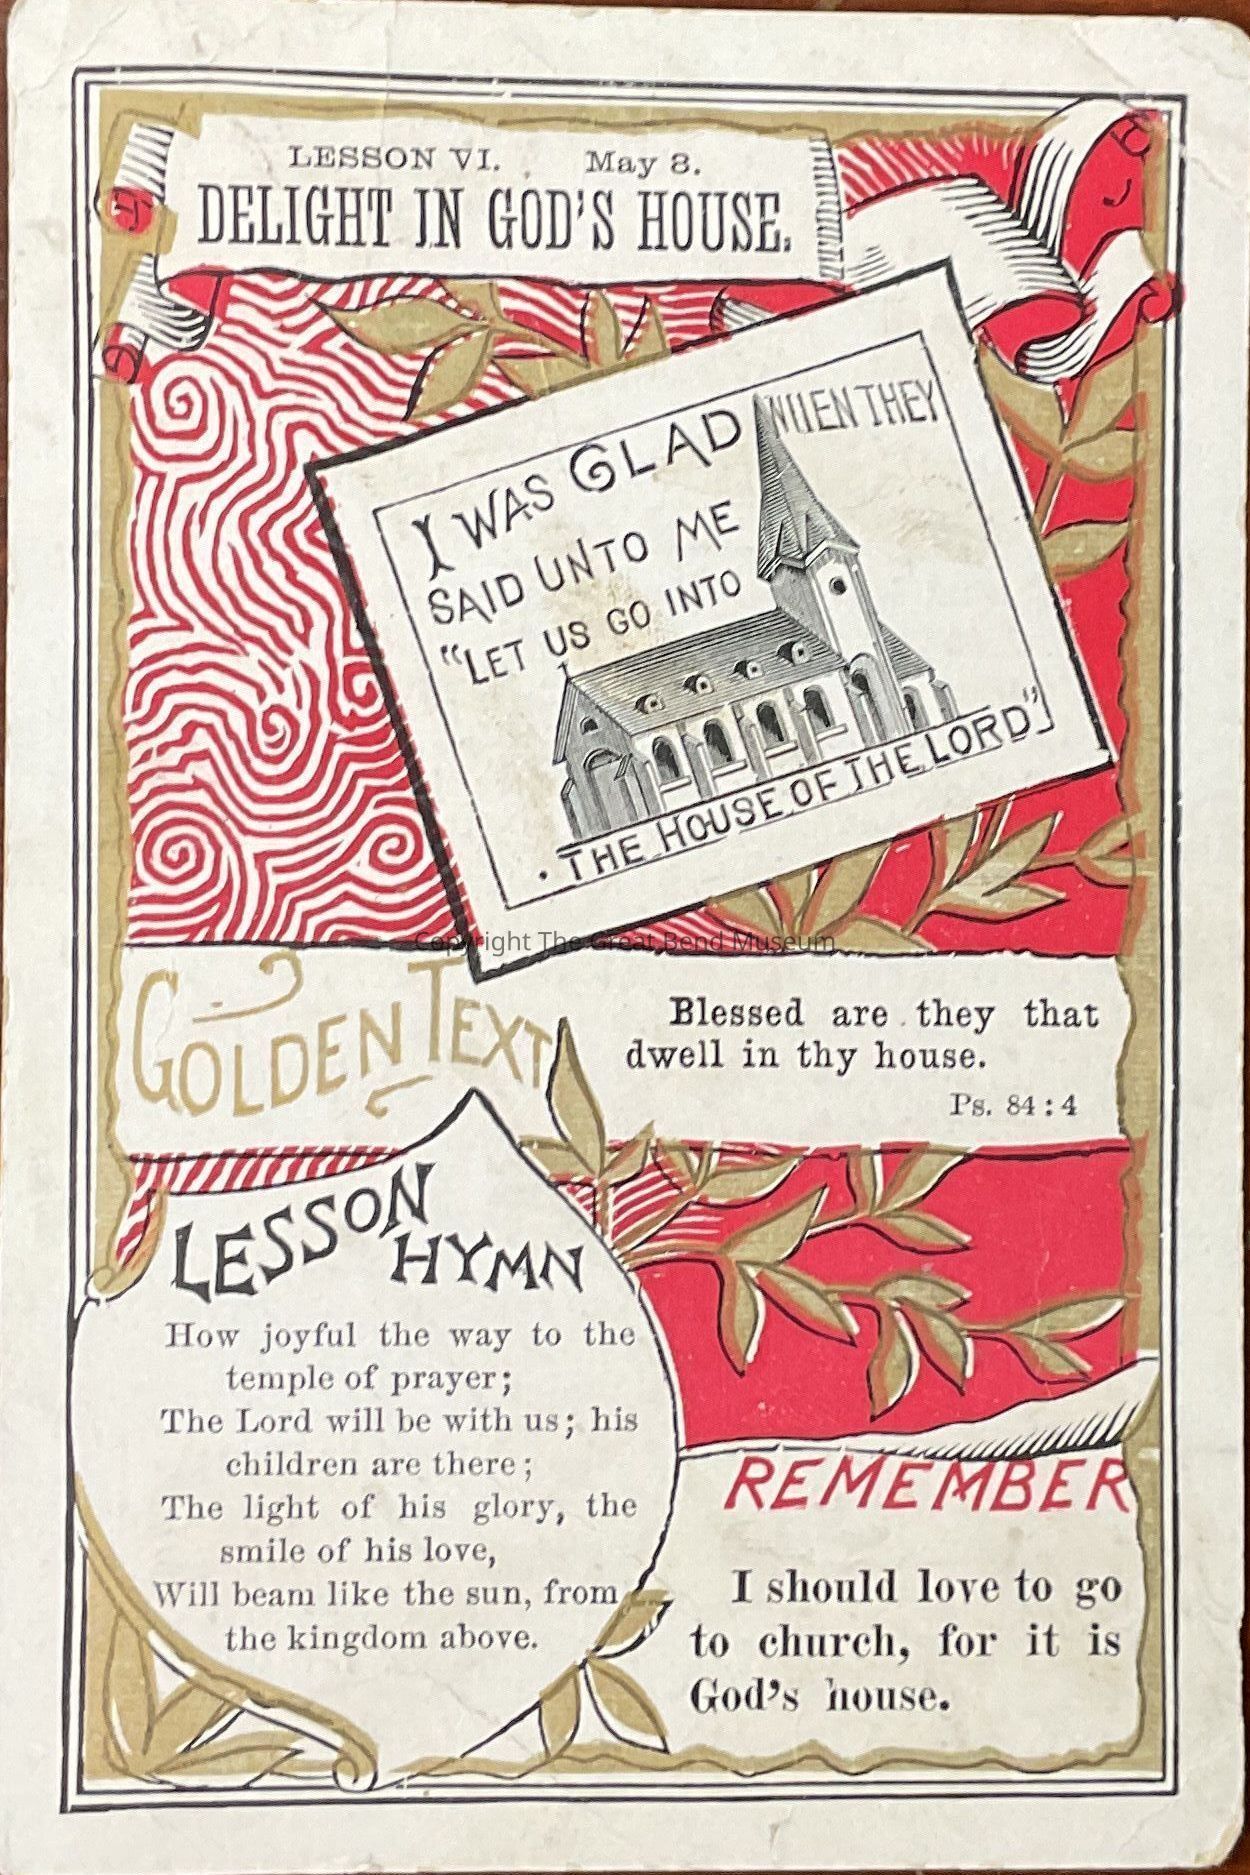 LESSON VI. May 8.
DELIGHT IN GOD'S HOUSE.
I WAS GLAD WHEN THEY
SAID UNTO ME
"LET US GO INTO
THE HOUSE OF THE LORD"
Copyright The Great Bend Museum
GOLDEN TEXT
Blessed are they that
dwell in thy house.
Ps. 84:4
LESSON
HYMN
How joyful the way to the
temple of prayer;
The Lord will be with us; his
children are there;
The light of his glory, the
smile of his love,
Will beam like the sun, from
the kingdom above.
REMEMBER
I should love to go
to church, for it is
God's house.